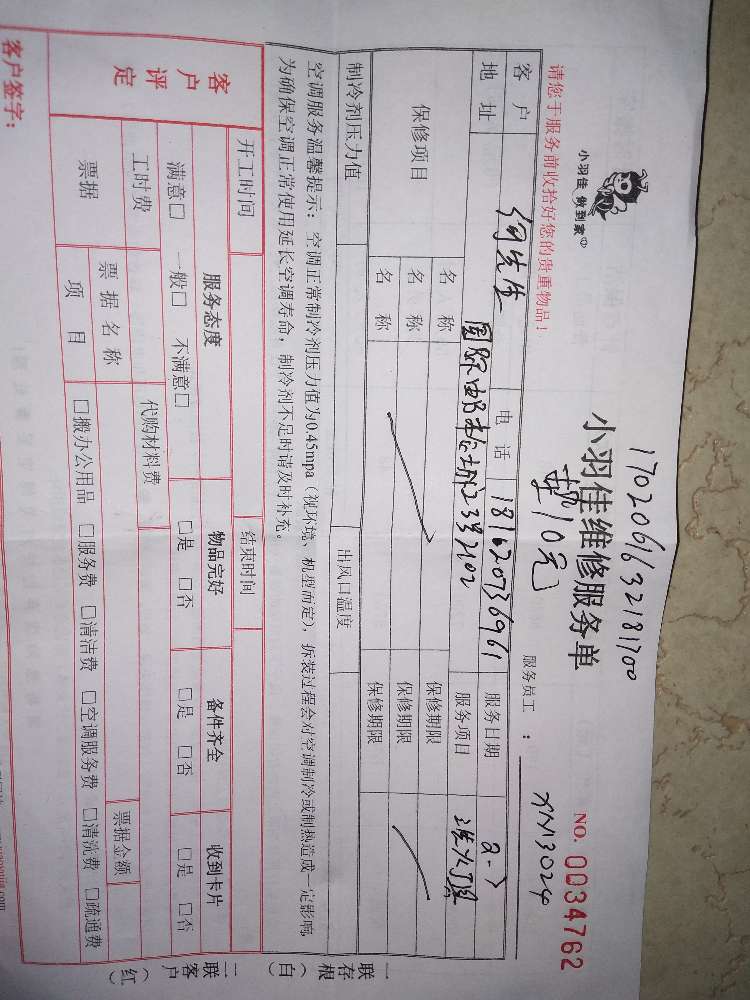 1702061632181700
小羽佳 做到家
小羽佳维修服务单
10元
NO. 0034762
请您于服务前收拾好您的贵重物品！
服务员工： XM3024
客户 何先生 电话 181620736961 服务日期 2.7
地址 国际邮轮城2号2102 服务项目
保修项目 名称 保修期限
名称 保修期限
名称 保修期限
制冷剂压力值 出风口温度
空调服务温馨提示：空调正常制冷剂压力值为0.45mpa（视环境、机型而定），拆装过程会对空调制冷或制热造成一定影响，
为确保空调正常使用延长空调寿命，制冷剂不足时请及时补充。
开工时间 结束时间
客户评定 服务态度 物品完好 备件齐全 收到卡片
满意□ 一般□ 不满意□ □是 □否 □是 □否 □是 □否
工时费 代购材料费
票据 票据名称 票据金额
项目 □搬办公用品 □服务费 □清洁费 □空调服务费 □清洗费 □疏通费
客户签字：
一联存根（白）
二联客户（红）